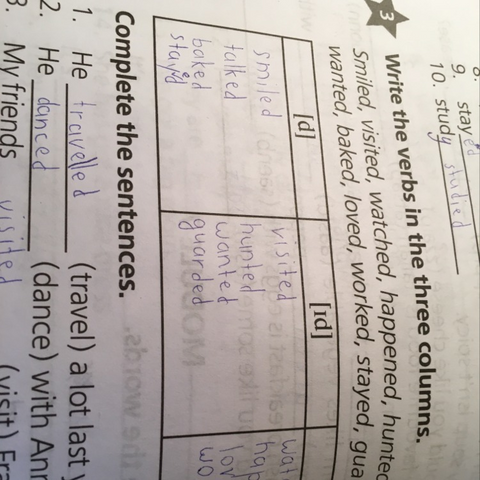 9. stayed
10. study studied
3 Write the verbs in the three columns.
Smiled, visited, watched, happened, hunted
wanted, baked, loved, worked, stayed, gua
[d] [ɪd]
smiled visited wat
talked hunted hap
baked wanted lov
stayed guarded wo
Complete the sentences.
1. He travelled (travel) a lot last y
2. He danced (dance) with Ann
3. My friends visited (visit) Fra